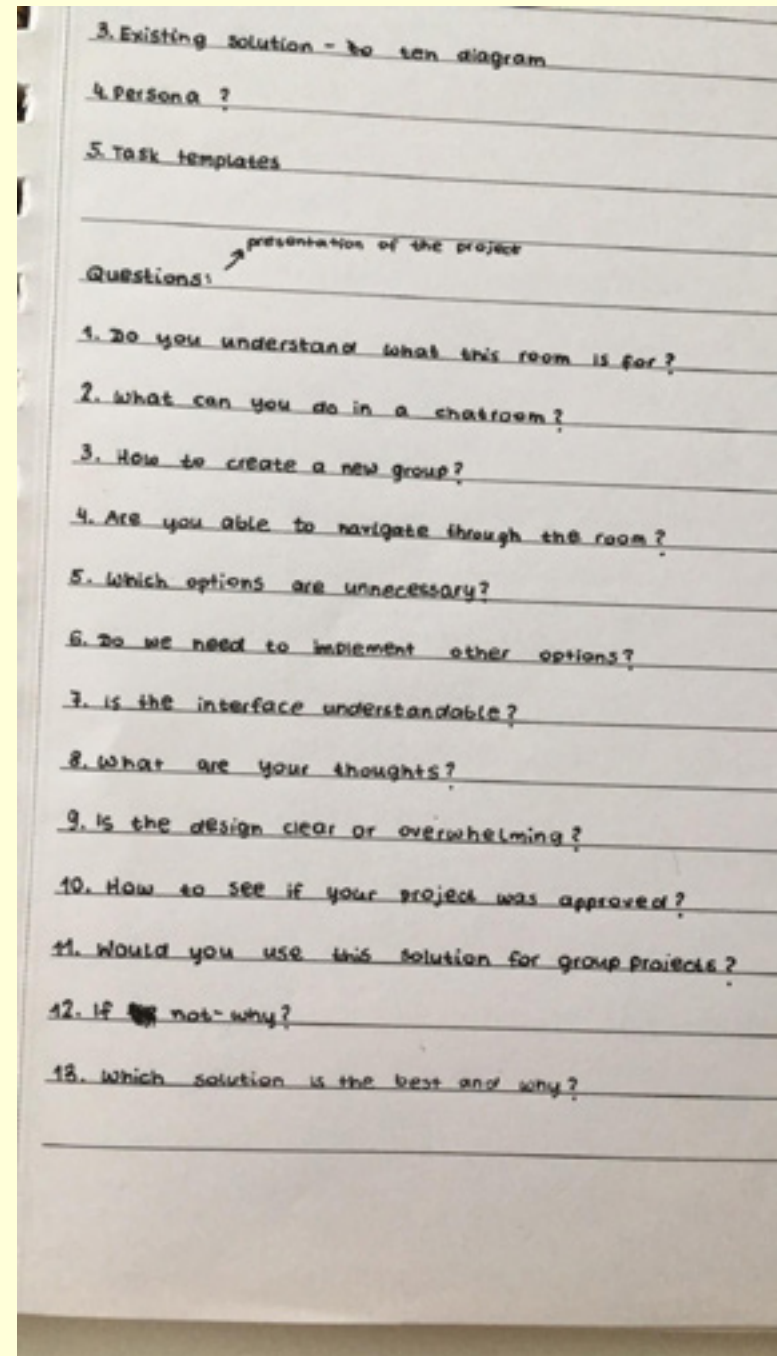 3. Existing solution - to ten diagram
4. Persona ?
5. Task templates
presentation of the project
Questions:
1. Do you understand what this room is for?
2. What can you do in a chatroom?
3. How to create a new group?
4. Are you able to navigate through the room?
5. Which options are unnecessary?
6. Do we need to implement other options?
7. Is the interface understandable?
8. What are your thoughts?
9. Is the design clear or overwhelming?
10. How to see if your project was approved?
11. Would you use this solution for group projects?
12. If not - why?
13. Which solution is the best and why?